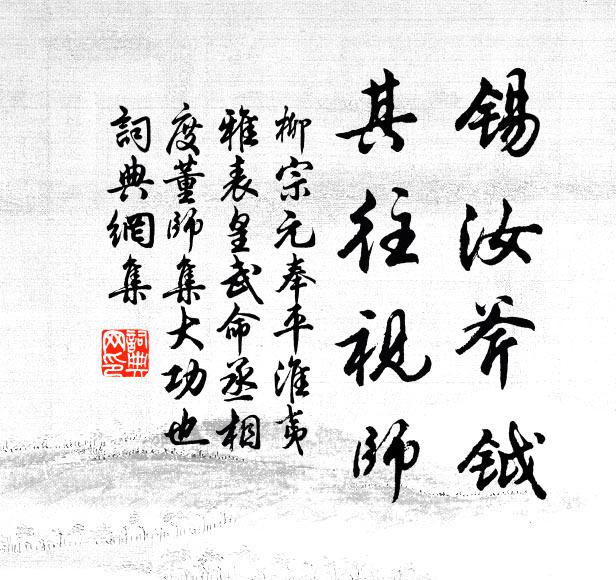 锡汝斧钺
其往视师
柳宗元奉平淮夷
雅表皇武命丞相
度董师集大功也
词典網集
詞典
网印